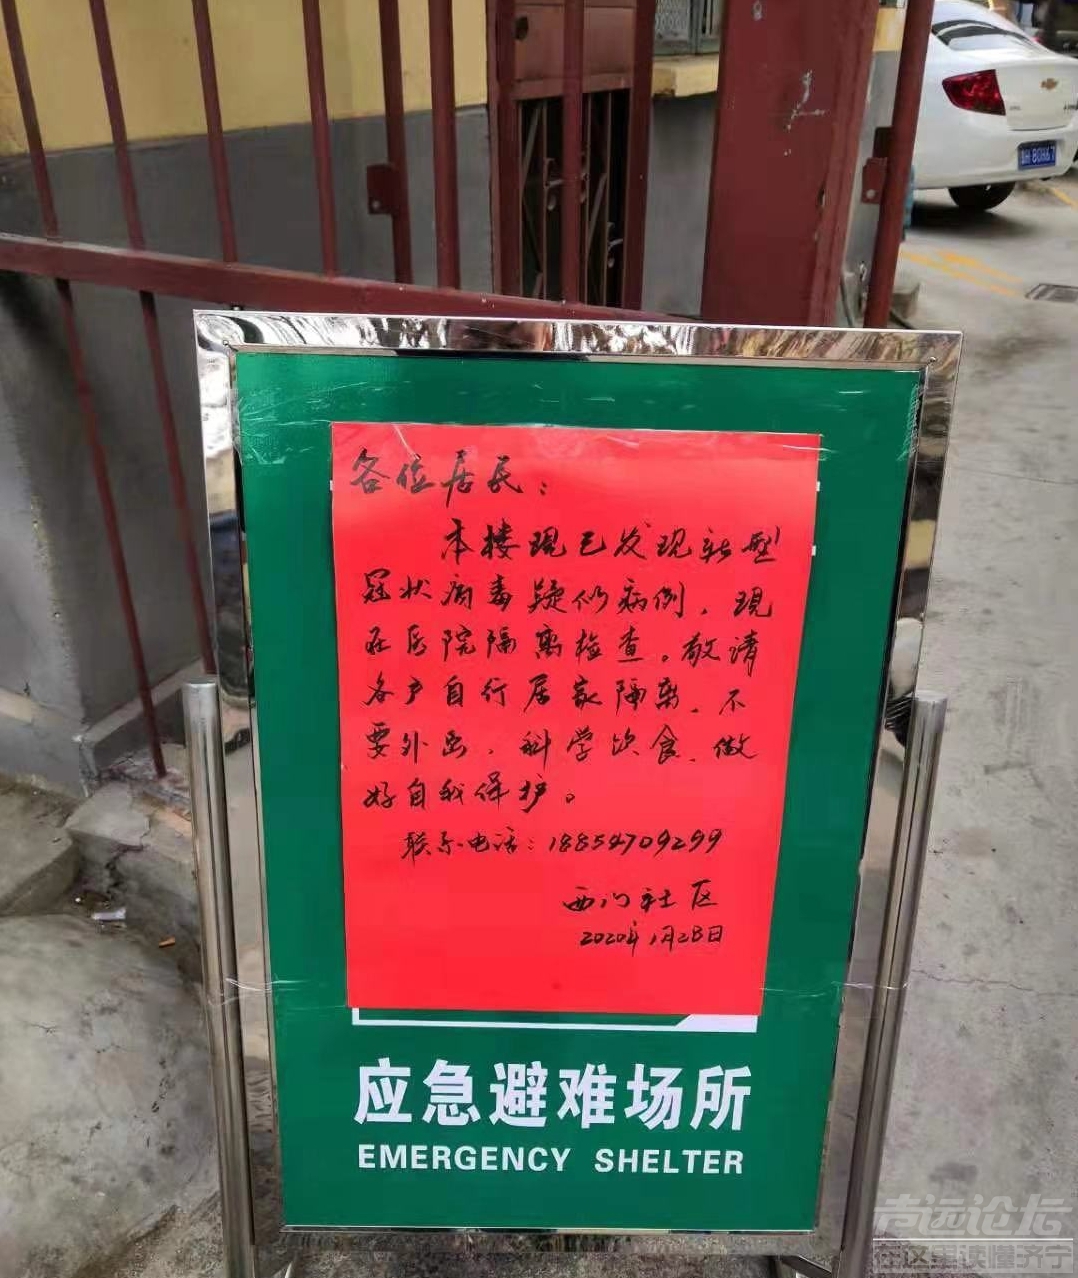 各位居民：
本楼现已发现新型
冠状病毒疑似病例，现
在医院隔离检查。敬请
各户自行居家隔离，不
要外出，科学饮食，做
好自我保护。
联系电话：18854709299
西门社区
2020年1月28日
应急避难场所
EMERGENCY SHELTER
声远论坛
在这里读懂济宁